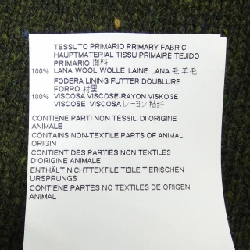 TESSUTO PRIMARIO PRIMARY FABRIC
HAUPTMATERIAL TISSU PRIMAIRE TEJIDO
PRIMARIO 面料
100% LANA WOOL WOLLE LAINE LANA 毛 羊毛
FODERA LINING FUTTER DOUBLURE
FORRO 衬里
100% VISCOSA VISCOSE-RAYON VISKOSE
VISCOSE VISCOSA レーヨン 粘纤
CONTIENE PARTI NON TESSILI DI ORIGINE
ANIMALE
CONTAINS NON-TEXTILE PARTS OF ANIMAL
ORIGIN
CONTIENT DES PARTIES NON TEXTILES
D'ORIGINE ANIMALE
ENTHÄLT NICHTTEXTILE TEILE TIERISCHEN
URSPRUNGS
CONTIENE PARTES NO TEXTILES DE ORIGEN
ANIMAL